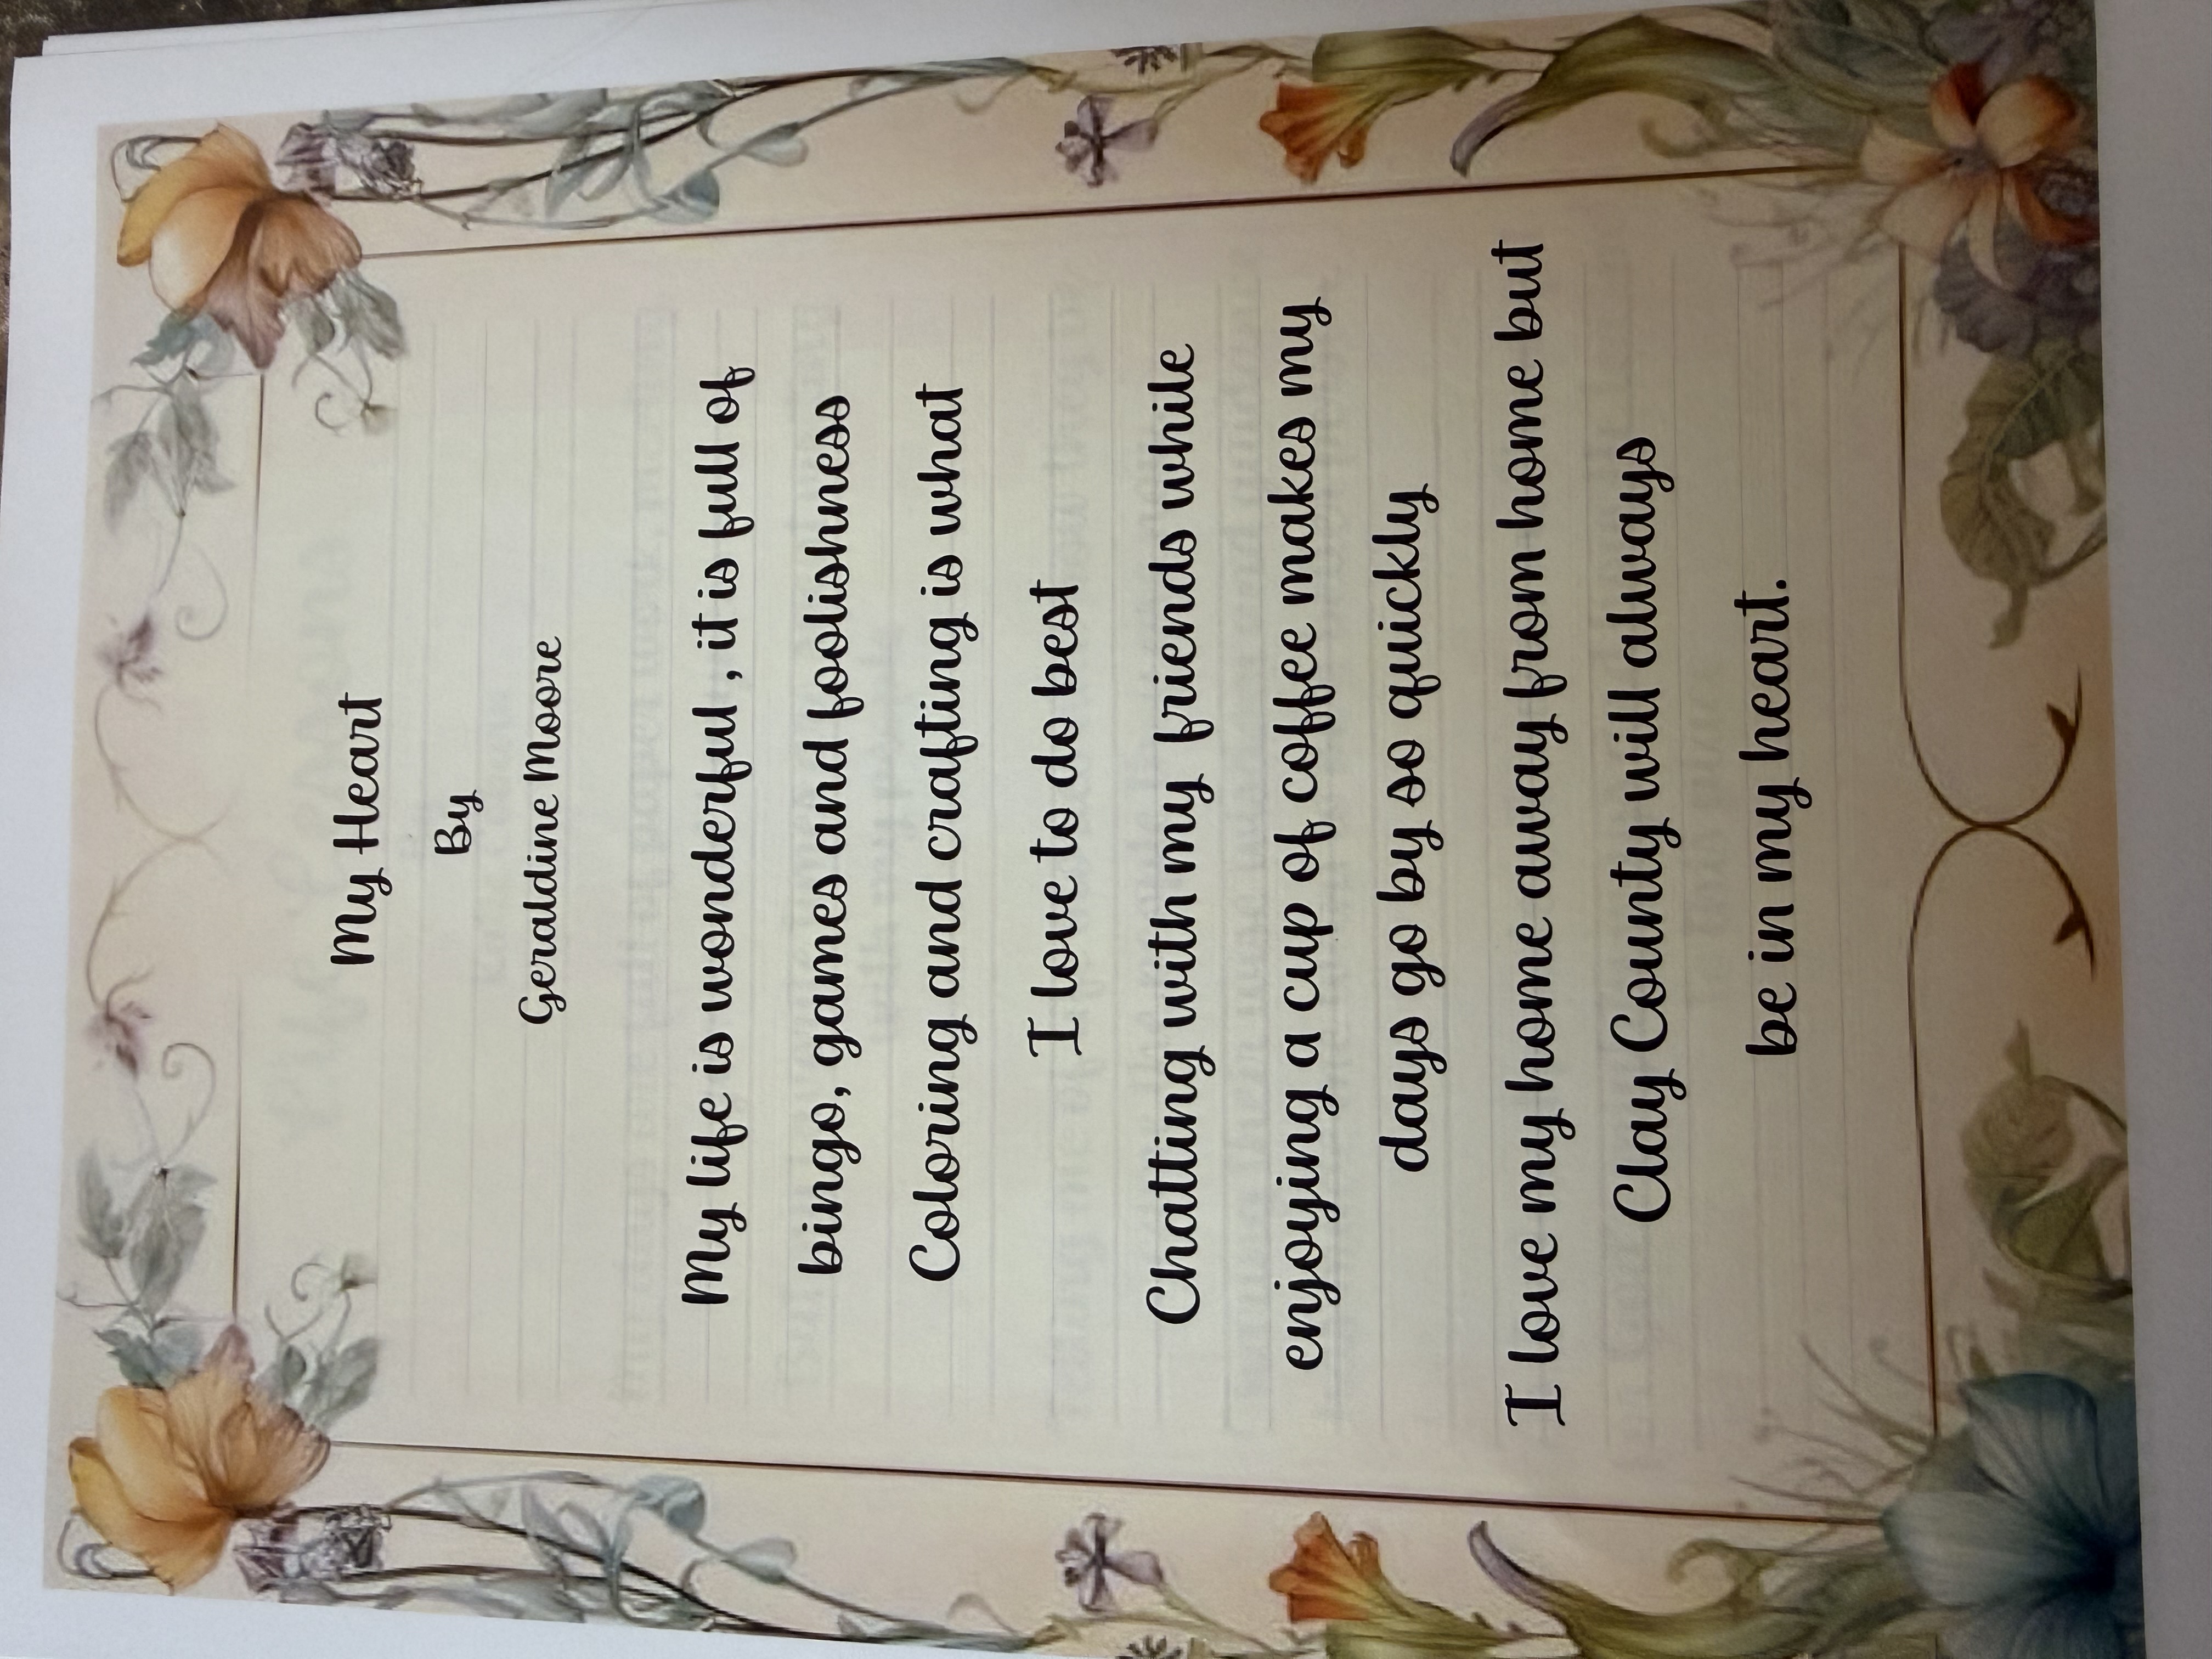 My Heart
By
Geraldine Moore
My life is wonderful, it is full of
bingo, games and foolishness
Coloring and crafting is what
I love to do best
Chatting with my friends while
enjoying a cup of coffee makes my
days go by so quickly
I love my home away from home but
Clay County will always
be in my heart.